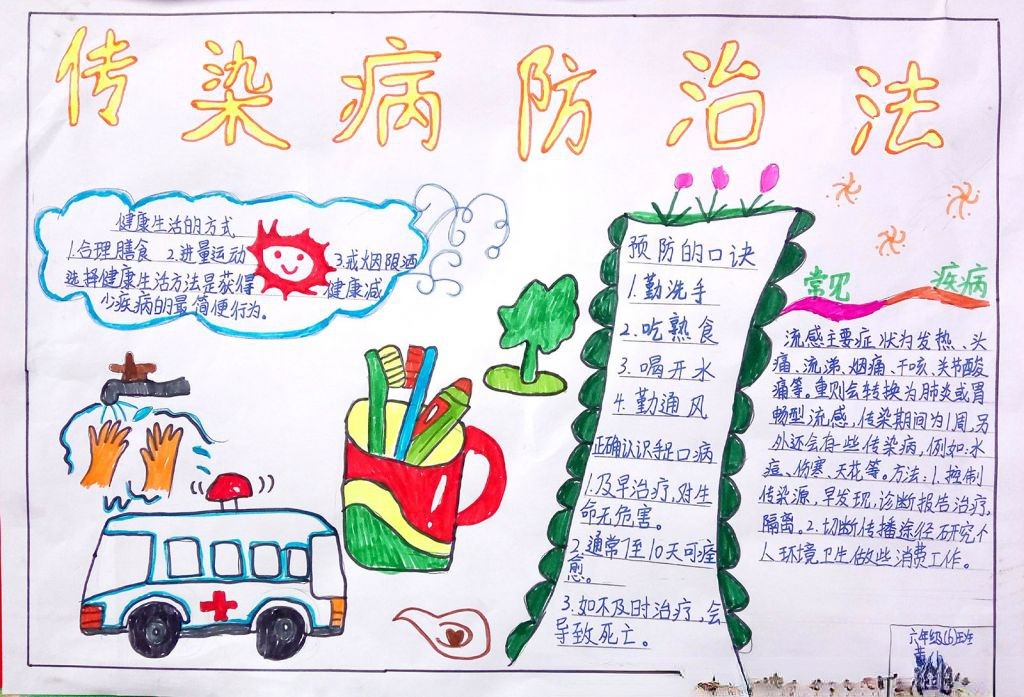 传染病防治法
健康生活的方式
1.合理膳食 2.进量运动 3.戒烟限酒
选择健康生活方法是获得健康减
少疾病的最简便行为。
预防的口诀
1.勤洗手
2.吃熟食
3.喝开水
4.勤通风
正确认识手足口病
1.及早治疗,对生
命无危害。
2.通常7至10天可痊
愈。
3.如不及时治疗,会
导致死亡。
常见 疾病
流感主要症状为发热、头
痛、流涕、烟痛、干咳、关节酸
痛等。重则会转换为肺炎或胃
畅型流感,传染期间为1周,另
外还会有些传染病,例如:水
痘、伤寒、天花等。方法:1.控制
传染源,早发现,诊断报告治疗,
隔离。2.切断传播途径研究个
人环境卫生做些消费工作。
六年级(6)班